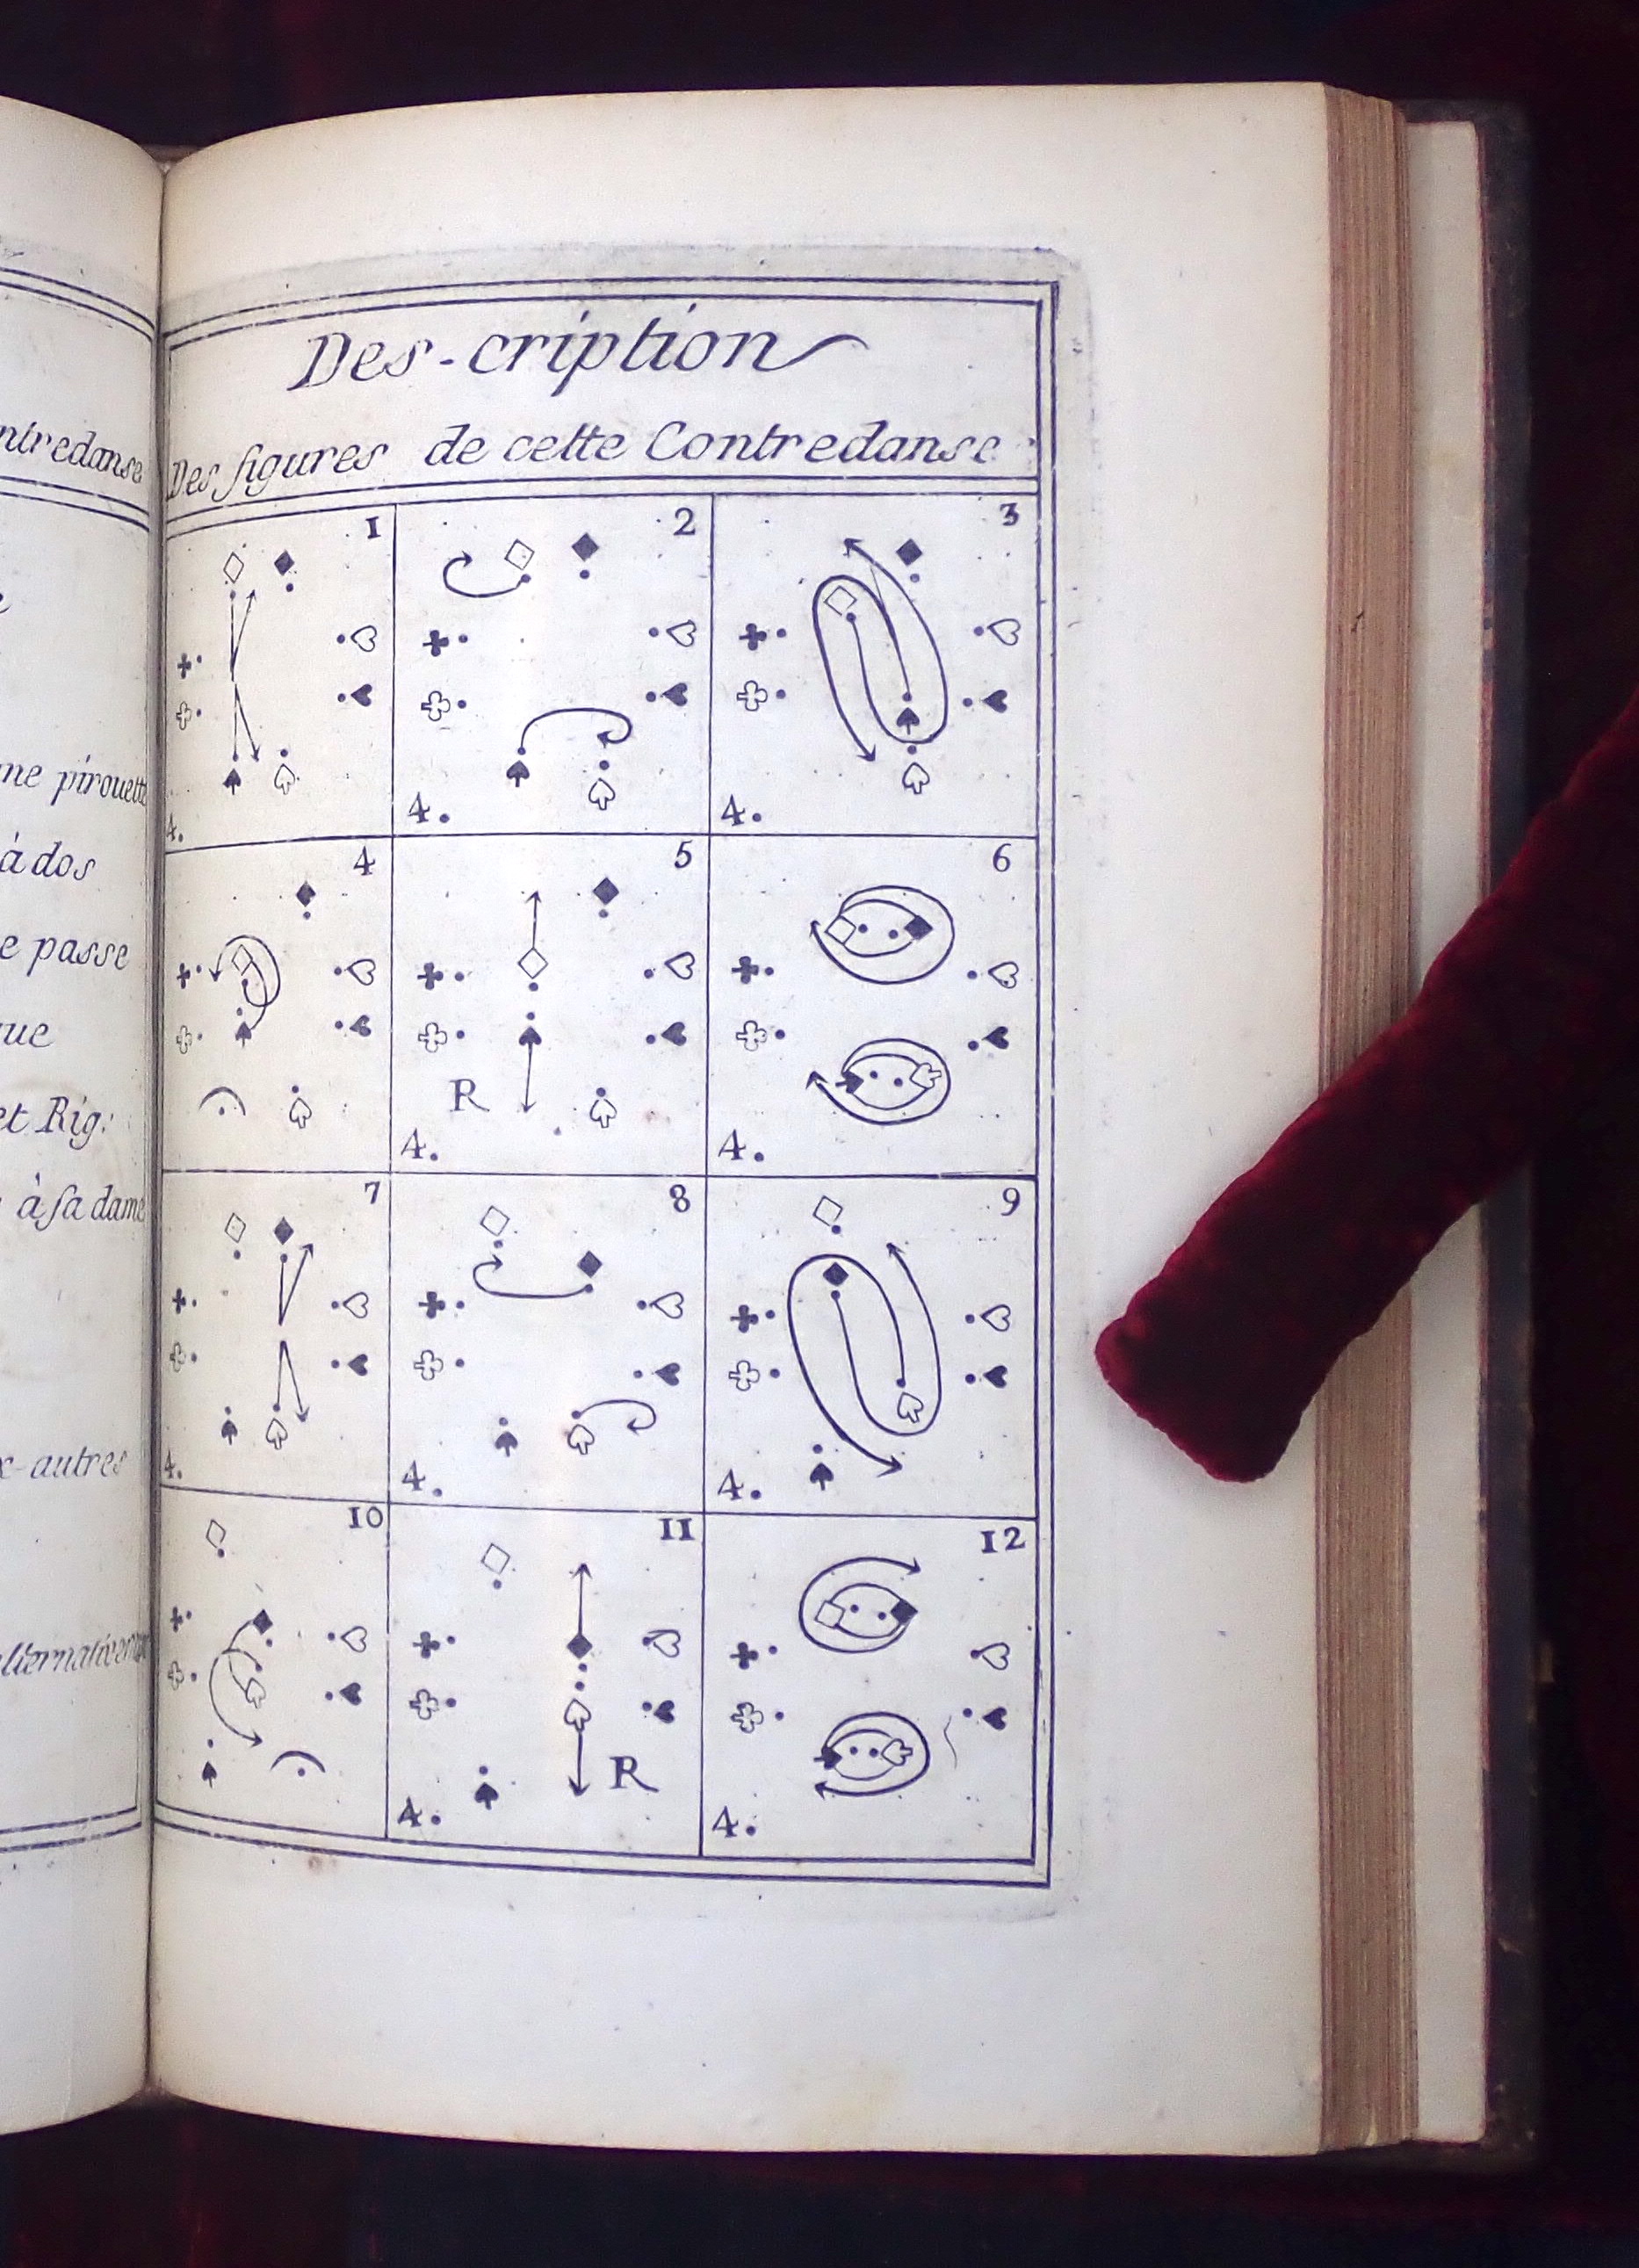 ntredanse
ne pirouette
à dos
e passe
que
et Rig:
à sa dame
x-autres
Des-cription
Des figures de cette Contredanse
1 2 3
4. 4. 4.
4 5 6
R
4. 4.
7 8 9
4. 4. 4.
10 11 12
R
4. 4.